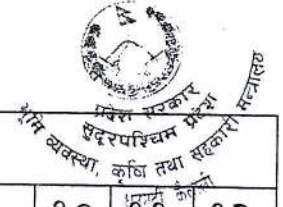 प्रदेश सरकार
सुदूरपश्चिम प्रदेश
भूमि व्यवस्था, कृषि तथा सहकारी मन्त्रालय
धनगढी कैलाली